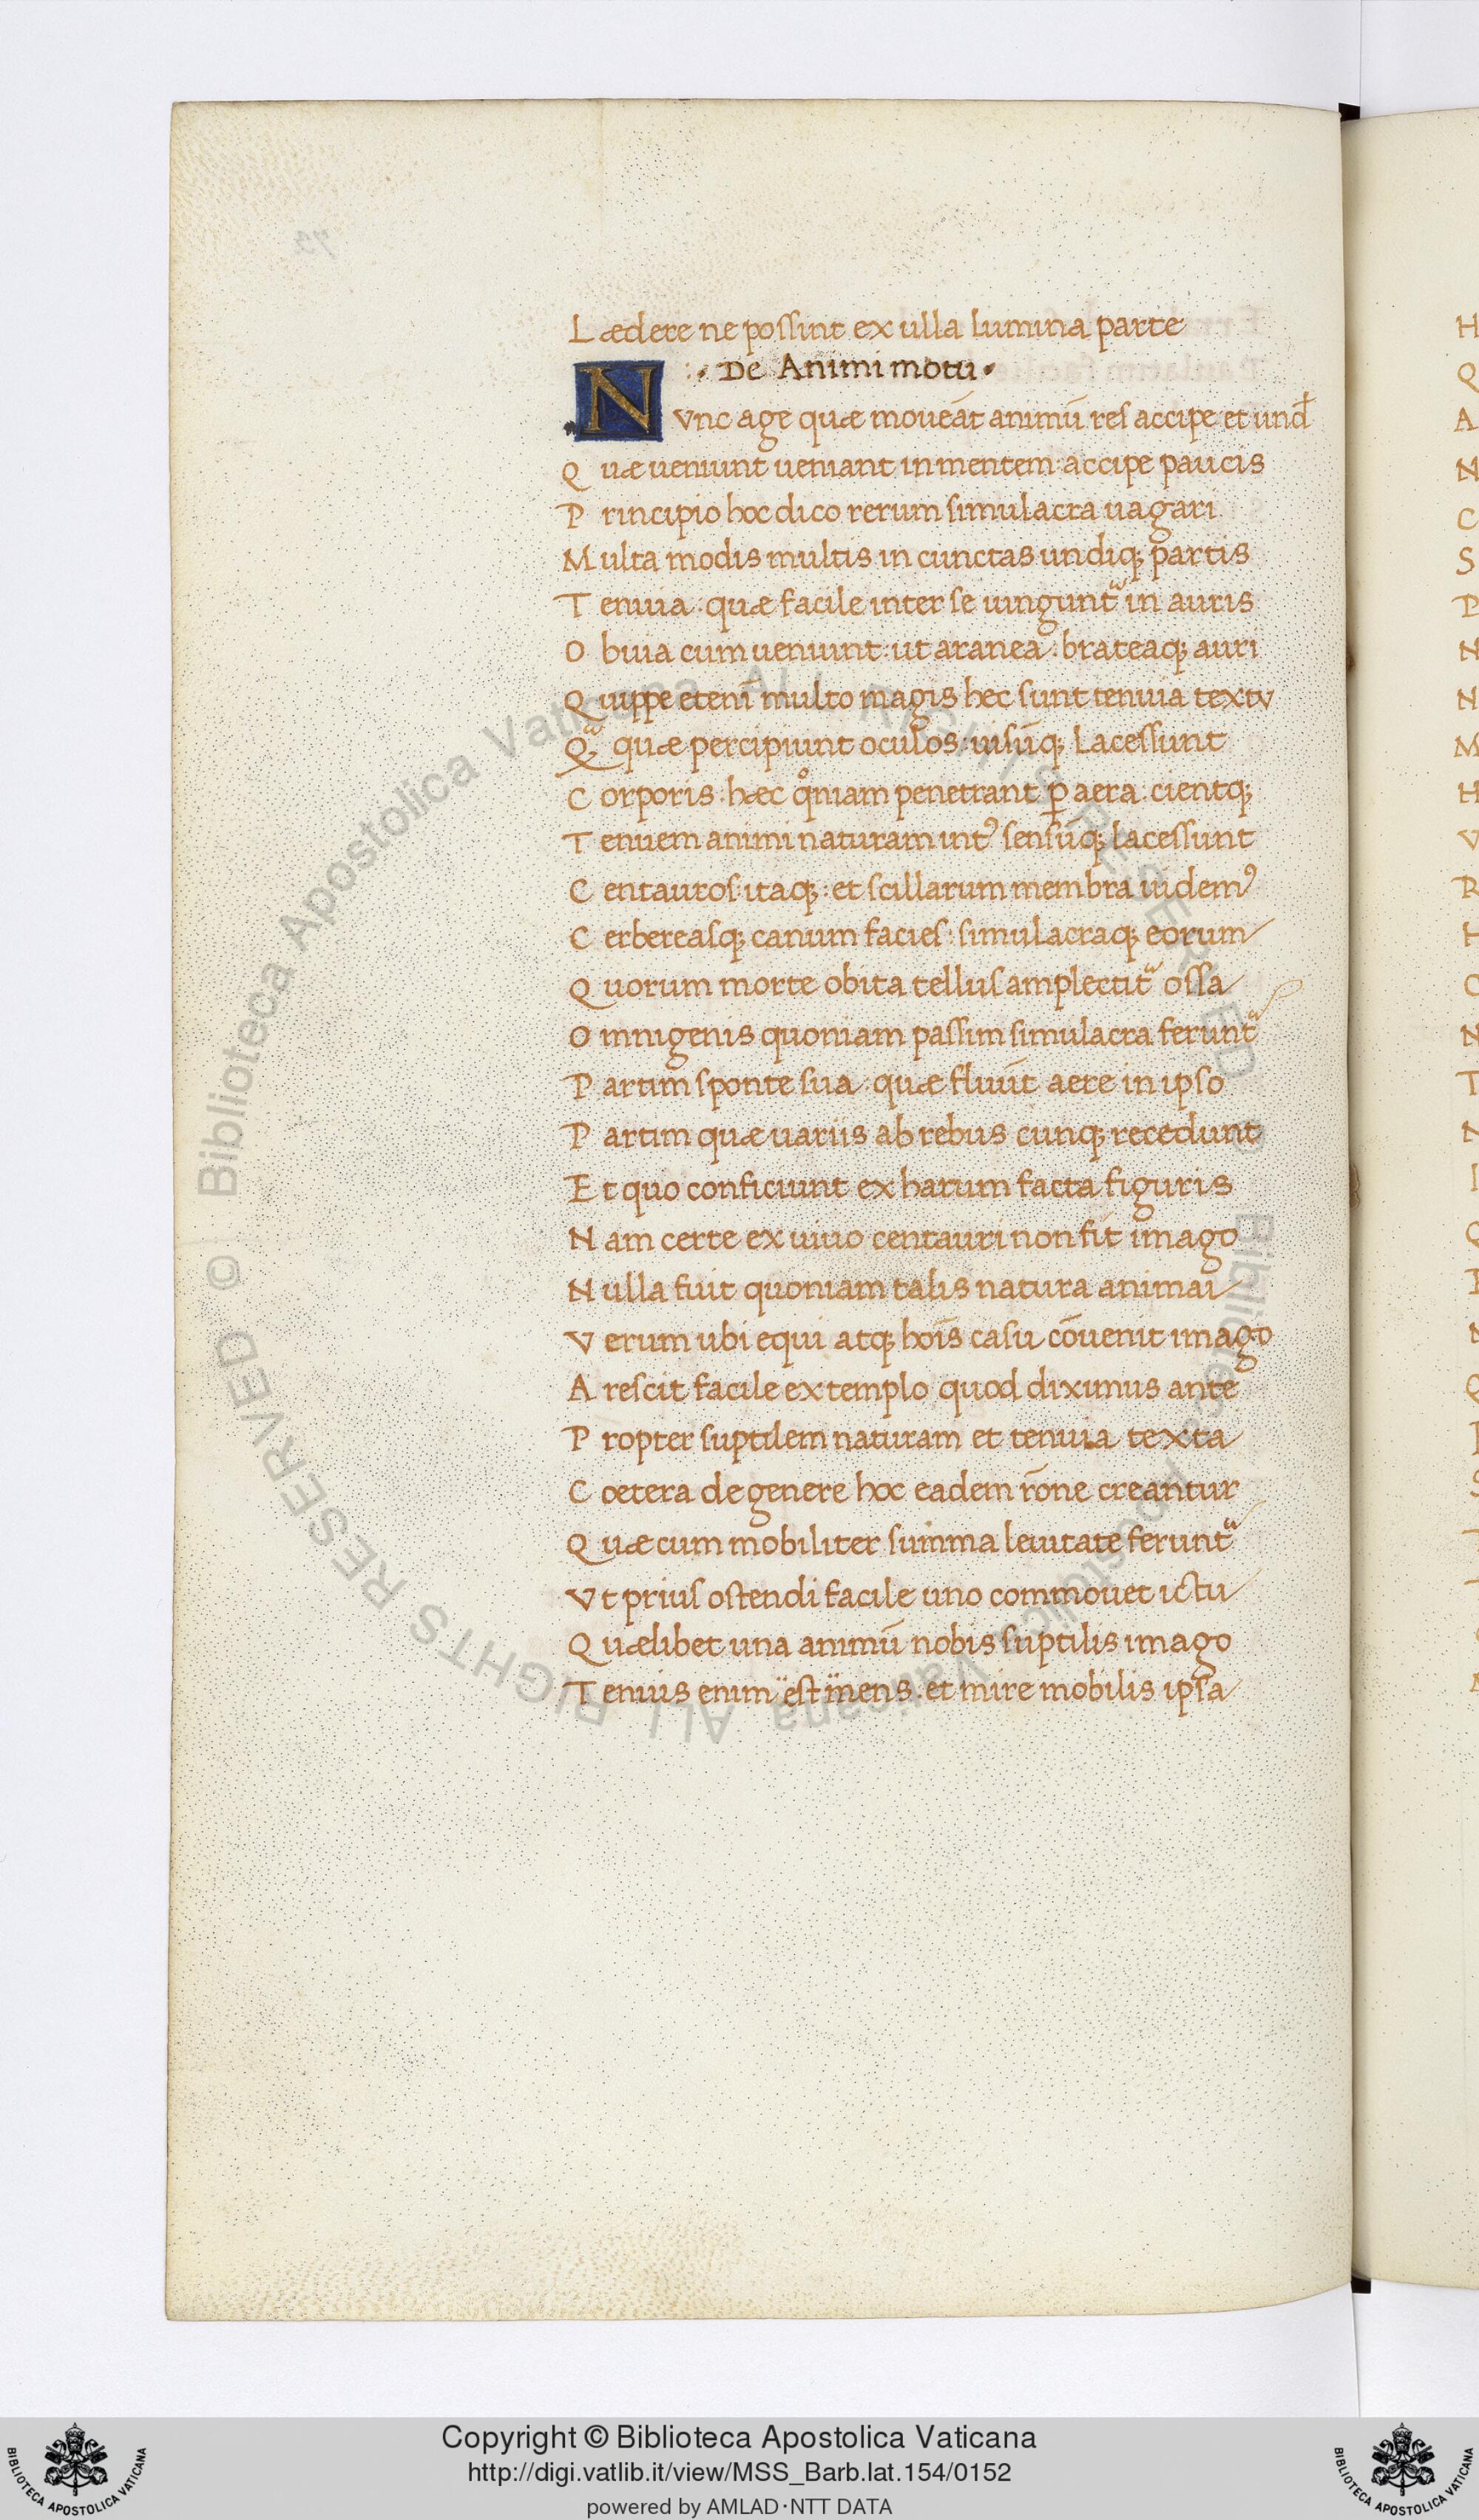 Lædere ne possint ex ulla lumina parte
:· De Animi motu ·
NVnc age quæ moueāt animū res accipe et und
Quæ ueniunt ueniant in mentem: accipe paucis
Principio hoc dico rerum simulacra uagari
Multa modis multis in cunctas undiq; partis
Tenuia: quæ facile inter se iungunt᷑ in auris
Obuia cum ueniunt: ut aranea: brateaq; auri
Quippe etenī multo magis hec sunt tenuia textu
Q᷑ quæ percipiunt oculos: uisūq; lacessunt
Corporis: hæc qͦniam penetrant ꝑ aera: cientq;
Tenuem animi naturam intꝰ sensūq; lacessunt
Centauros: itaq;: et scillarum membra uidemꝰ
Cerbereasq; canum facies: simulacraq; eorum
Quorum morte obita tellus amplectit᷑ ossa
Omnigenis quoniam passim simulacra ferunt᷑
Partim sponte sua: quæ fluūt aere in ipso
Partim quæ uariis ab rebus cunq; recedunt
Et quo conficiunt ex harum facta figuris
Nam certe ex uiuo centauri non fit imago
Nulla fuit quoniam talis natura animai
Verum ubi equi atq; hoīs casu cōuenit imago
Arescit facile extemplo quod diximus ante
Propter suptilem naturam et tenuia texta
Cœtera de genere hoc eadem rōne creantur
Quæ cum mobiliter summa leuitate ferunt᷑
Vt prius ostendi facile uno commouet ictu
Quælibet una animū nobis suptilis imago
Tenuis enim est mens: et mire mobilis ipsa
© Biblioteca Apostolica Vaticana ALL RIGHTS RESERVED © Biblioteca Apostolica Vaticana ALL RIGHTS RESERVED
BIBLIOTECA APOSTOLICA VATICANA
Copyright © Biblioteca Apostolica Vaticana
http://digi.vatlib.it/view/MSS_Barb.lat.154/0152
powered by AMLAD·NTT DATA
BIBLIOTECA APOSTOLICA VATICANA